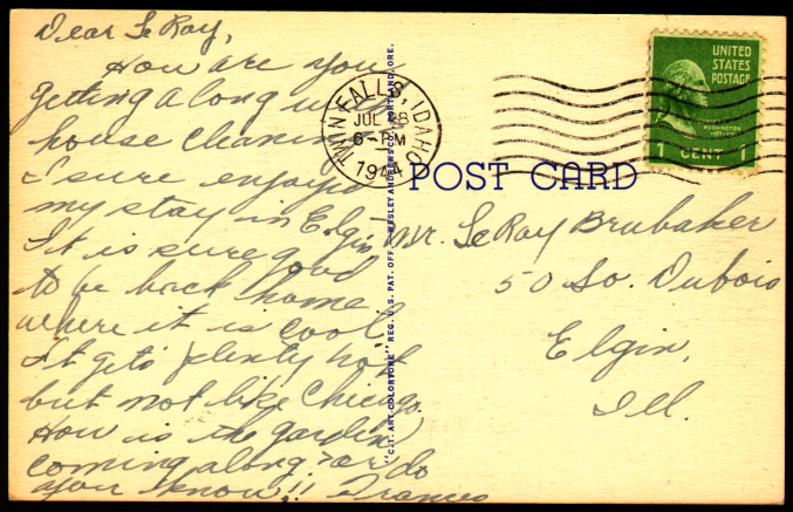 Dear Le Roy,
How are you
getting along with
house cleaning
I sure enjoyed
my stay in Elgin
It is sure good
to be back home
where it is cool,
It gets plenty hot
but not like Chicago.
How is the garden
coming along - or do
you know!! Frances
TWIN FALLS, IDAHO
JUL 28
6 - PM
1944
UNITED
STATES
POSTAGE
WASHINGTON
1 CENT 1
POST CARD
Mr. Le Roy Brubaker
50 So. Dubois
Elgin,
Ill.
"C.T. ART-COLORTONE" REG. U. S. PAT. OFF. WESLEY ANDREWS CO., PORTLAND, ORE.